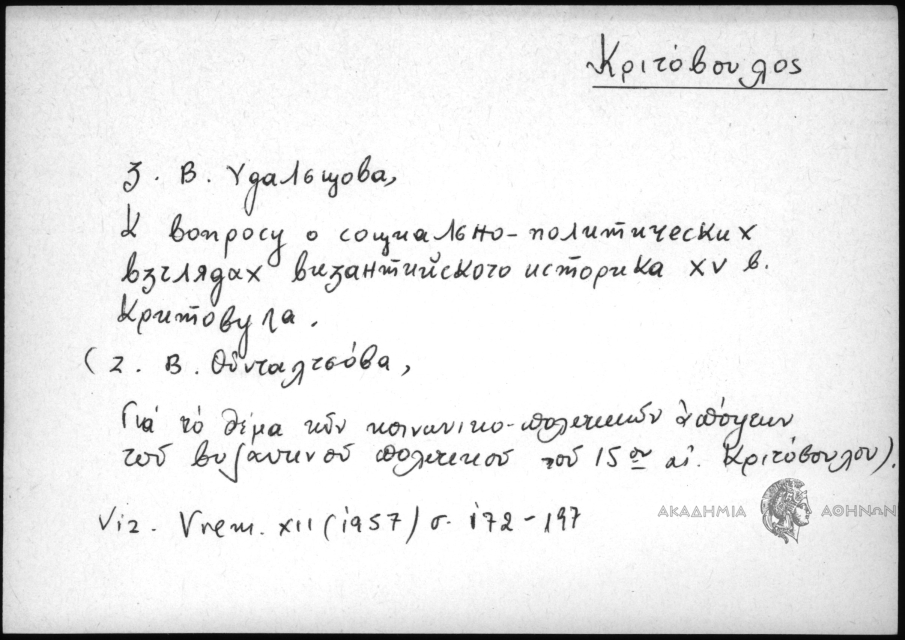 Κριτόβουλος
З. В. Удальцова,
К вопросу о социально-политических
взглядах византийского историка XV в.
Критовула.
(Ζ. Β. Οὐνταλτσόβα,
Γιά τό θέμα τῶν κοινωνικο-πολιτικῶν ἀπόψεων
τοῦ βυζαντινοῦ πολιτικοῦ τοῦ 15ου αἰ. Κριτόβουλου).
Viz. Vrem. XII (1957) σ. 172-197
ΑΚΑΔΗΜΙΑ ΑΘΗΝΩΝ